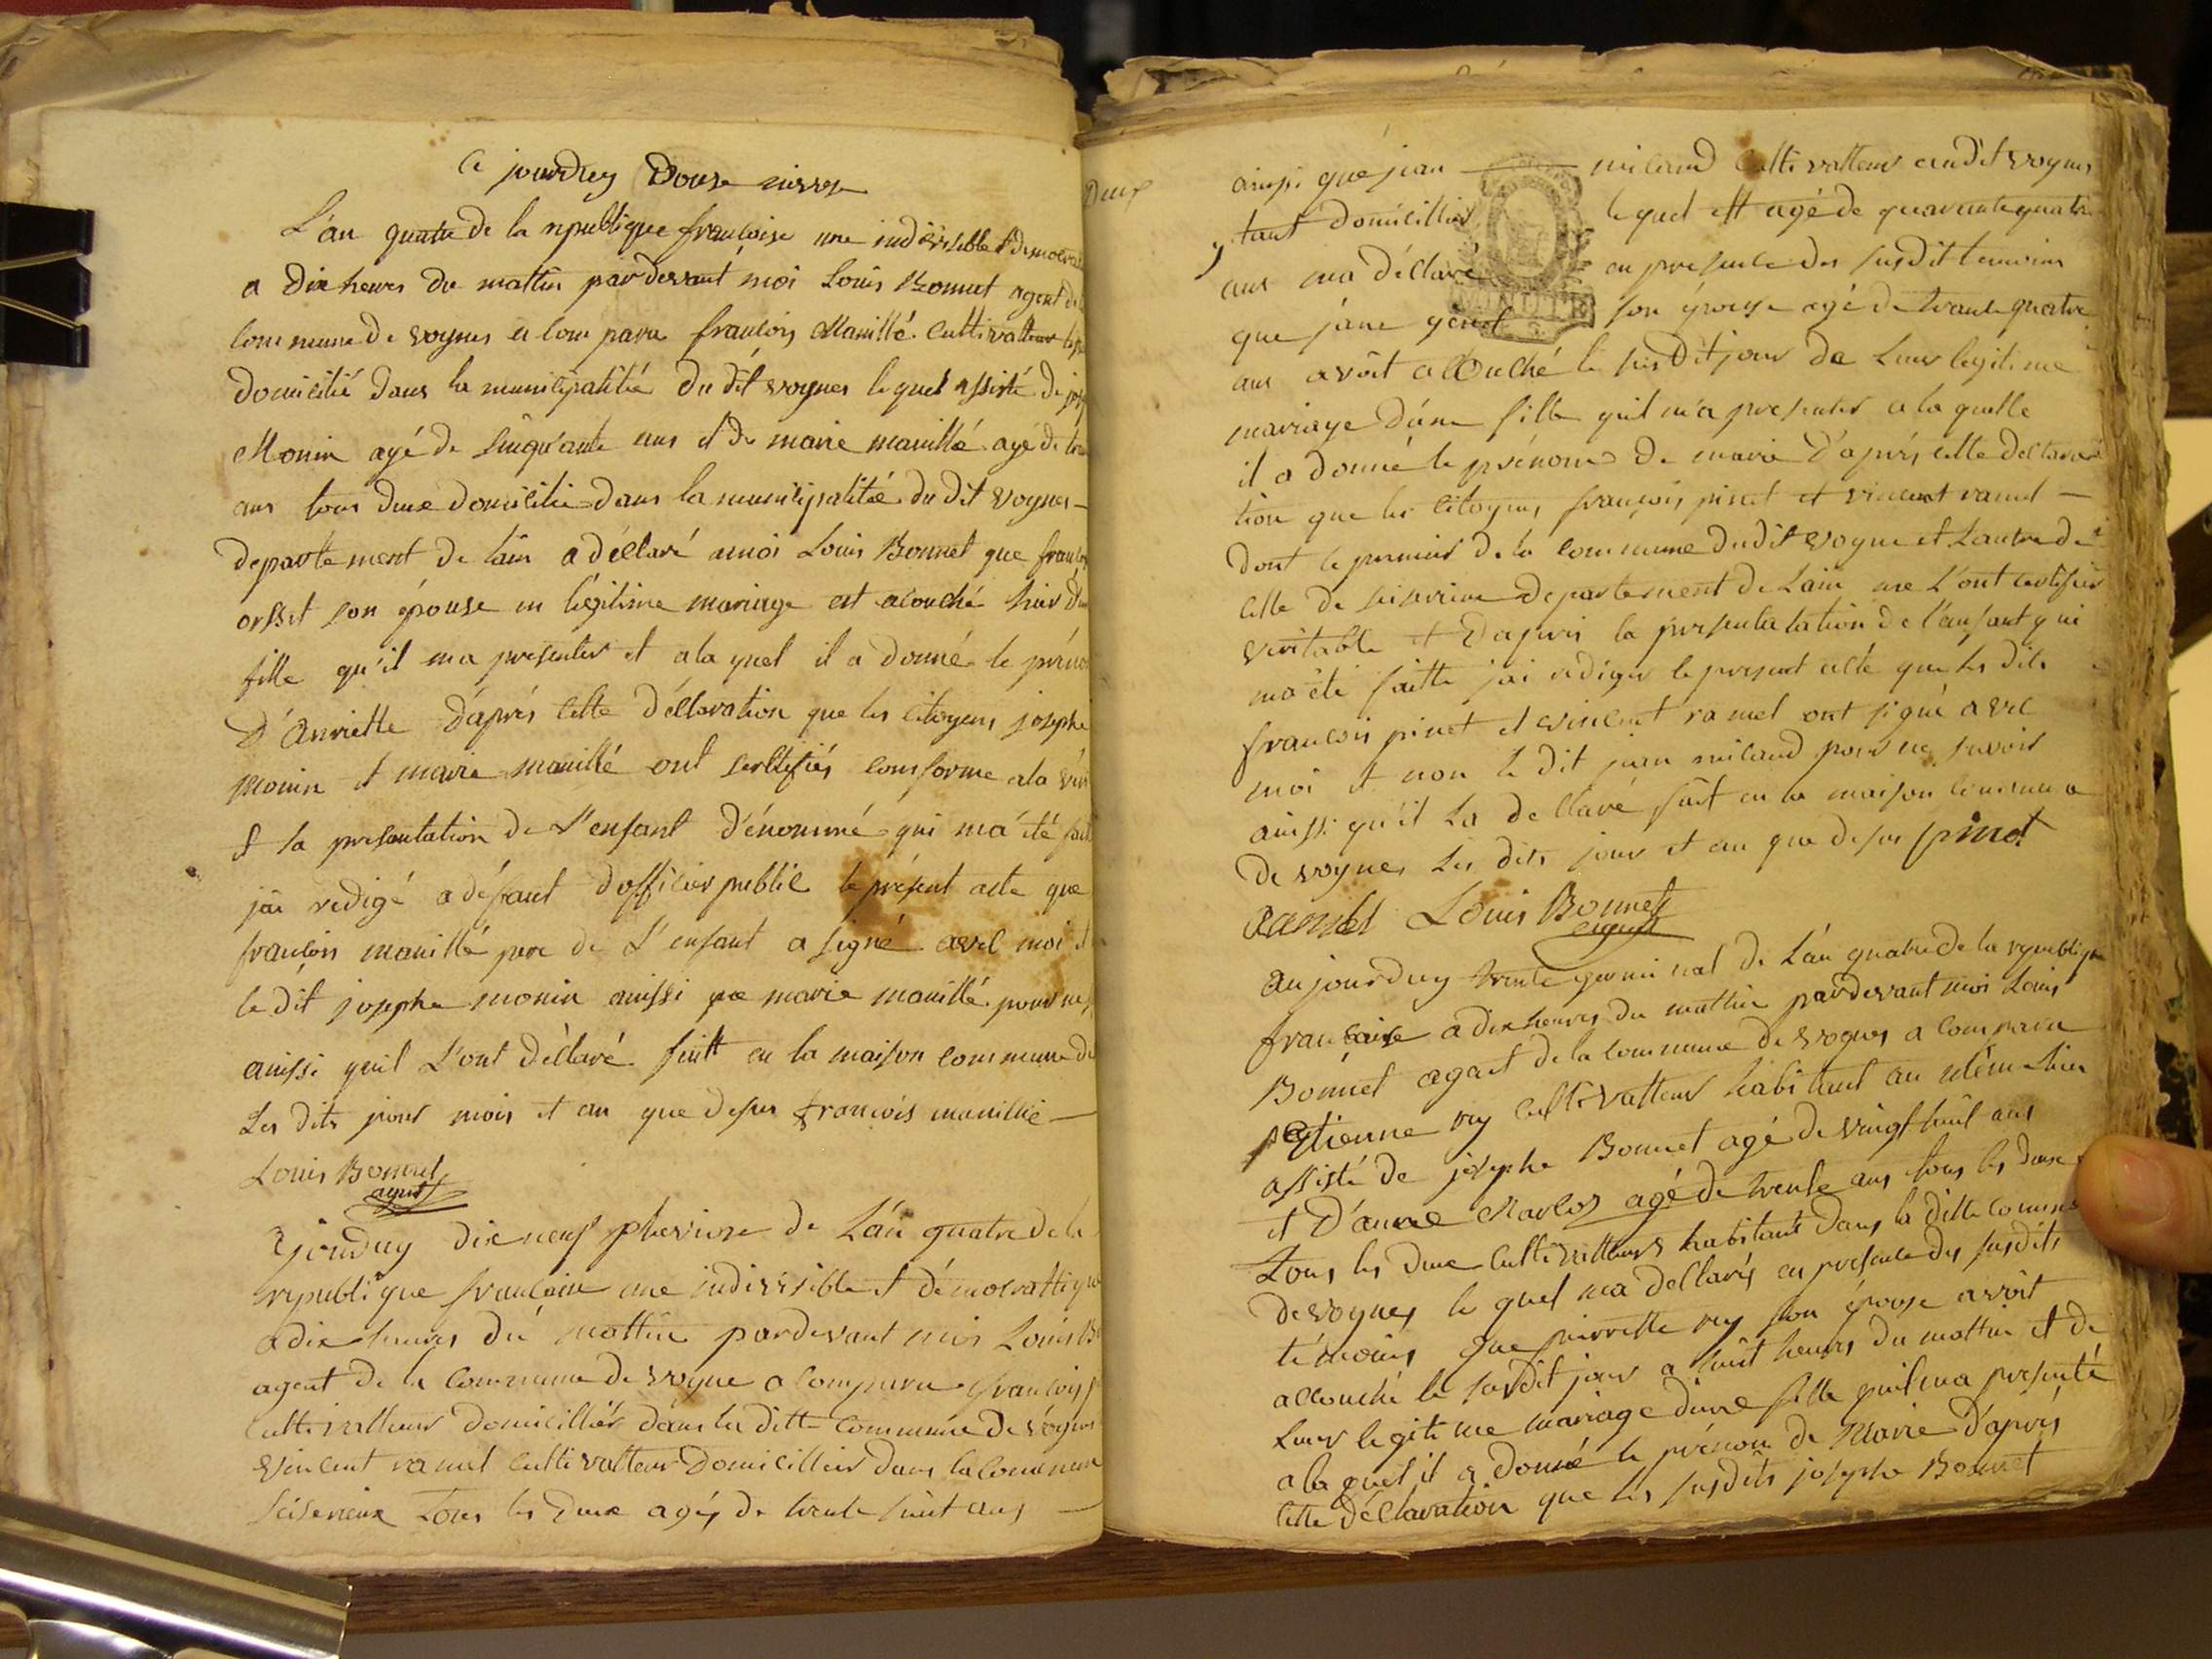 Ce jourduy Douse nivose
L'an quatre de la republique françoise une indivisible et democra
a dix heures du mattin pardevant moi Louis Bonnet agent de
commune de vognes a comparu françois Manillé cultivatteur
domicilié dans la municipalitié du dit vognes lequel assisté de jose
Monin agé de sinquante ans et de marie manillé agé de tren
ans tous deux domicilié dans la municipalitié du dit vognes
departement de lain a déclaré amoi Louis Bonnet que franç
orsset son épouse en légitime mariage est acouché hier d'un
fille qu'il ma presenter et ala quel il a donné le préno
d'anriette d'après cette déclaration que les citoyens josephe
monin et marie manillé ont sertifiés conforme ala véri
et la presentation de l'enfant dénommé qui ma été fait
jai redigé adéfaut dofficier public le présent acte que
françois manillé pere de l'enfant a signé avec moi et
le dit josephe monin ainssi que marie manillé pour ne
ainssi quil l'ont déclaré faitt en la maison commune de
les dits jour mois et an que desus françois manillié
Louis Bonnet
agent
jourduy dix neuf pluviose de l'an quatre de la
republique françoise une indivisible et démocrattique
adix heures du mattin pardevant moi Louis B
agent de la commune de vogne a comparu françois p
cultivatteur domicilliér dans la ditte commune de vognes
vincent ramel cultivatteur domicillier dans la commune
seiserieux tous les deux agés de trente huit ans
Deux
ainssi que jean milaud cultivatteur audit vognes
y tant domicilliér le quel est agé de quarante quatre
ans ma déclaré en presence des susdit temoins
que jane genet son épouse agé de trante quatre
ans avoit acouché le susdit jour de leur legitime
mariage d'une fille quil m'a presenter a la quelle
il a donné le prénom de marie d'après cette declara
tion que les citoyens françois pinet et vincent ramel
dont le premier de la commune dudit vogne et l'autre de
celle de seiserieux departement de lain me l'ont certifier
veritable et d'aprés la presentatation de l'anfant qui
ma été faitte jai rédiger le present acte que les dits
françois pinet et vincent ramel ont signé avec
moi et non le dit jean milaud pour ne savoir
ainssi qu'il la déclaré fait en la maison commune
de vognes les dits jour et an que desus pinet
Ramel Louis Bonnet
agent
aujourduy trente germinal de l'an quatre de la republique
française a dix heures du mattin pardevant moi Louis
Bonnet agent de la commune de vognes a comparu
Etienne rey cultivatteur habitant au même lieu
assisté de josephe Bonnet agé de vingt huit ans
et d'anne Marlos agé de trente ans tous les deux
tous les deux cultivatteurs habitant dans la ditte commune
de vognes le quel ma déclarés en presence des susdits
témoins que pierrette rey son épouse avoit
accouché le susdit jour a huit heures du mattin et de
leur legitime mariage d'une fille quil ma presenté
a la quel il a donné le prénom de Marie d'après
cette déclaration que les susdits josephe Bonnet